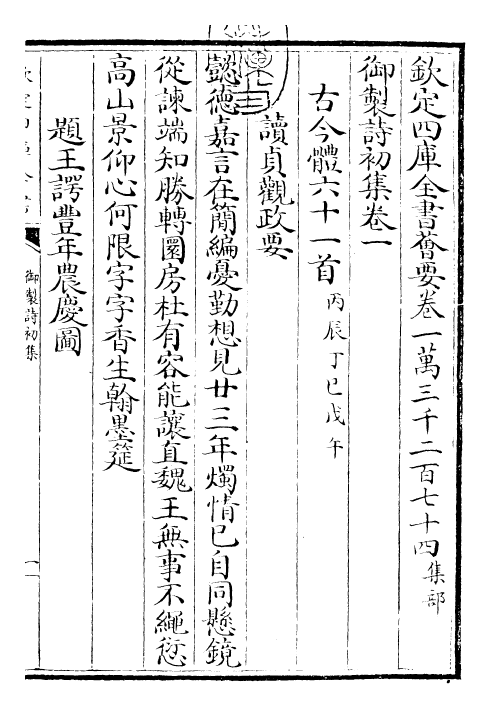 欽定四庫全書薈要卷一萬三千二百七十四集部
御製詩初集卷一
古今體六十一首丙辰丁巳戊午
讀貞觀政要
懿德嘉言在簡編憂勤想見廿三年燭情已自同懸鏡
從諫端知勝轉圜房杜有容能讓直魏王無事不繩愆
高山景仰心何限字字香生翰墨筵
題王諤豐年農慶圖
御製詩初集
一